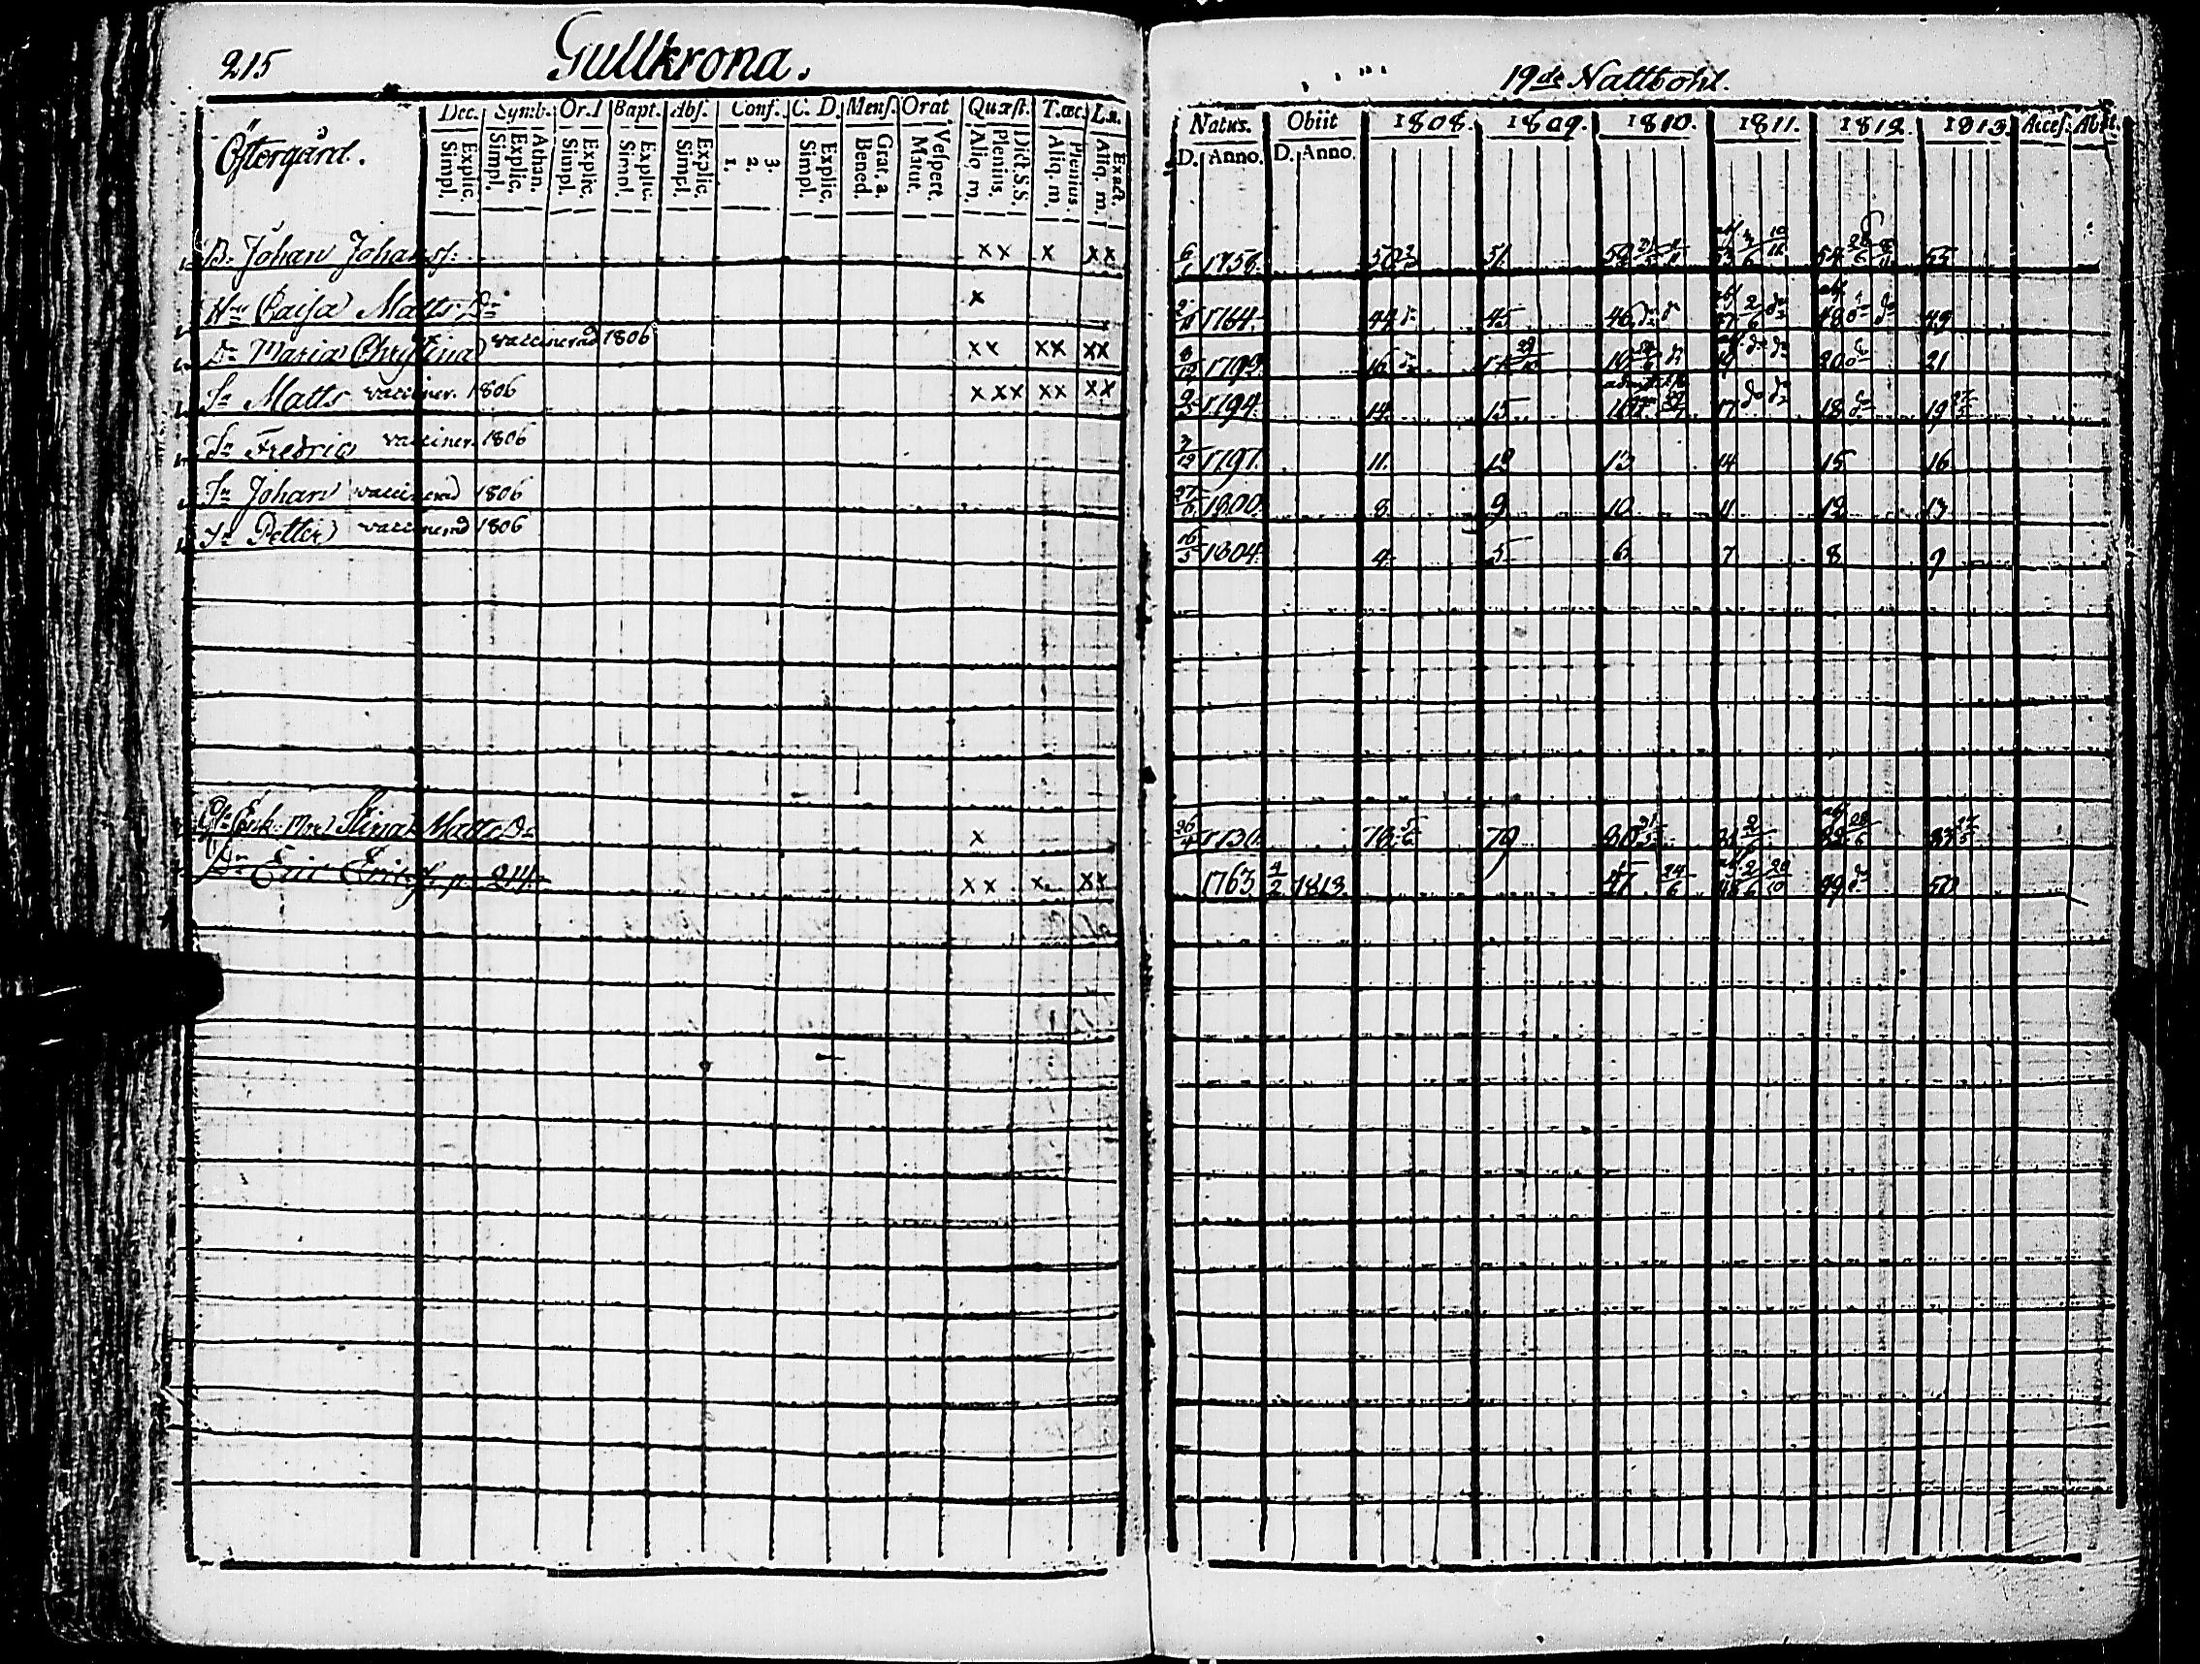 215 Gullkrona.
19de Nattbohl.
Östergård.
Dec. Symb. Or. I Bapt. Abs. Conf. C. D. Mens. Orat Quæst. T. œc. L. n.
Explic. Simpl. Athan. Explic. Simpl. Explic. Simpl. Explic. Simpl. Explic. Simpl. 3. 2. 1. Explic. Simpl. Grat. a. Bened. Vespert. Matut. Dict. S.S. Plenius. Aliq m. Plenius Aliq. m. Exact. Aliq. m.
Natus. Obiit 1808. 1809. 1810. 1811. 1812. 1813. Acces. Abit.
D. Anno. D. Anno.
B. Johan Johanss: xx x xx 6/1 1758. 50 51. 52 53 54 55
Hu Caisa Matts Dr x 1764. 44 45 46 47 48 49
Dr Maria Christina vaccinerad 1806 xx xx xx 1792. 16 17 18 19 20 21
Sn Matts vacciner. 1806 xxx xx xx 1794. 14. 15 16 17 18 19
Sn Fredric vacciner. 1806 3/12 1797. 11. 12 13 14 15 16
Sn Johan vaccinerad 1806 1800. 8. 9 10 11 12 13
Sn Petter vaccinerad 1806 16/5 1804. 4. 5 6 7 8 9
Stina Matts Dr x 26/4 1730. 78 79 80 81 82 83
Eric Ericss. p. 214. xx x xx 1763 4/2 1813. 47 24/6 48 49 50